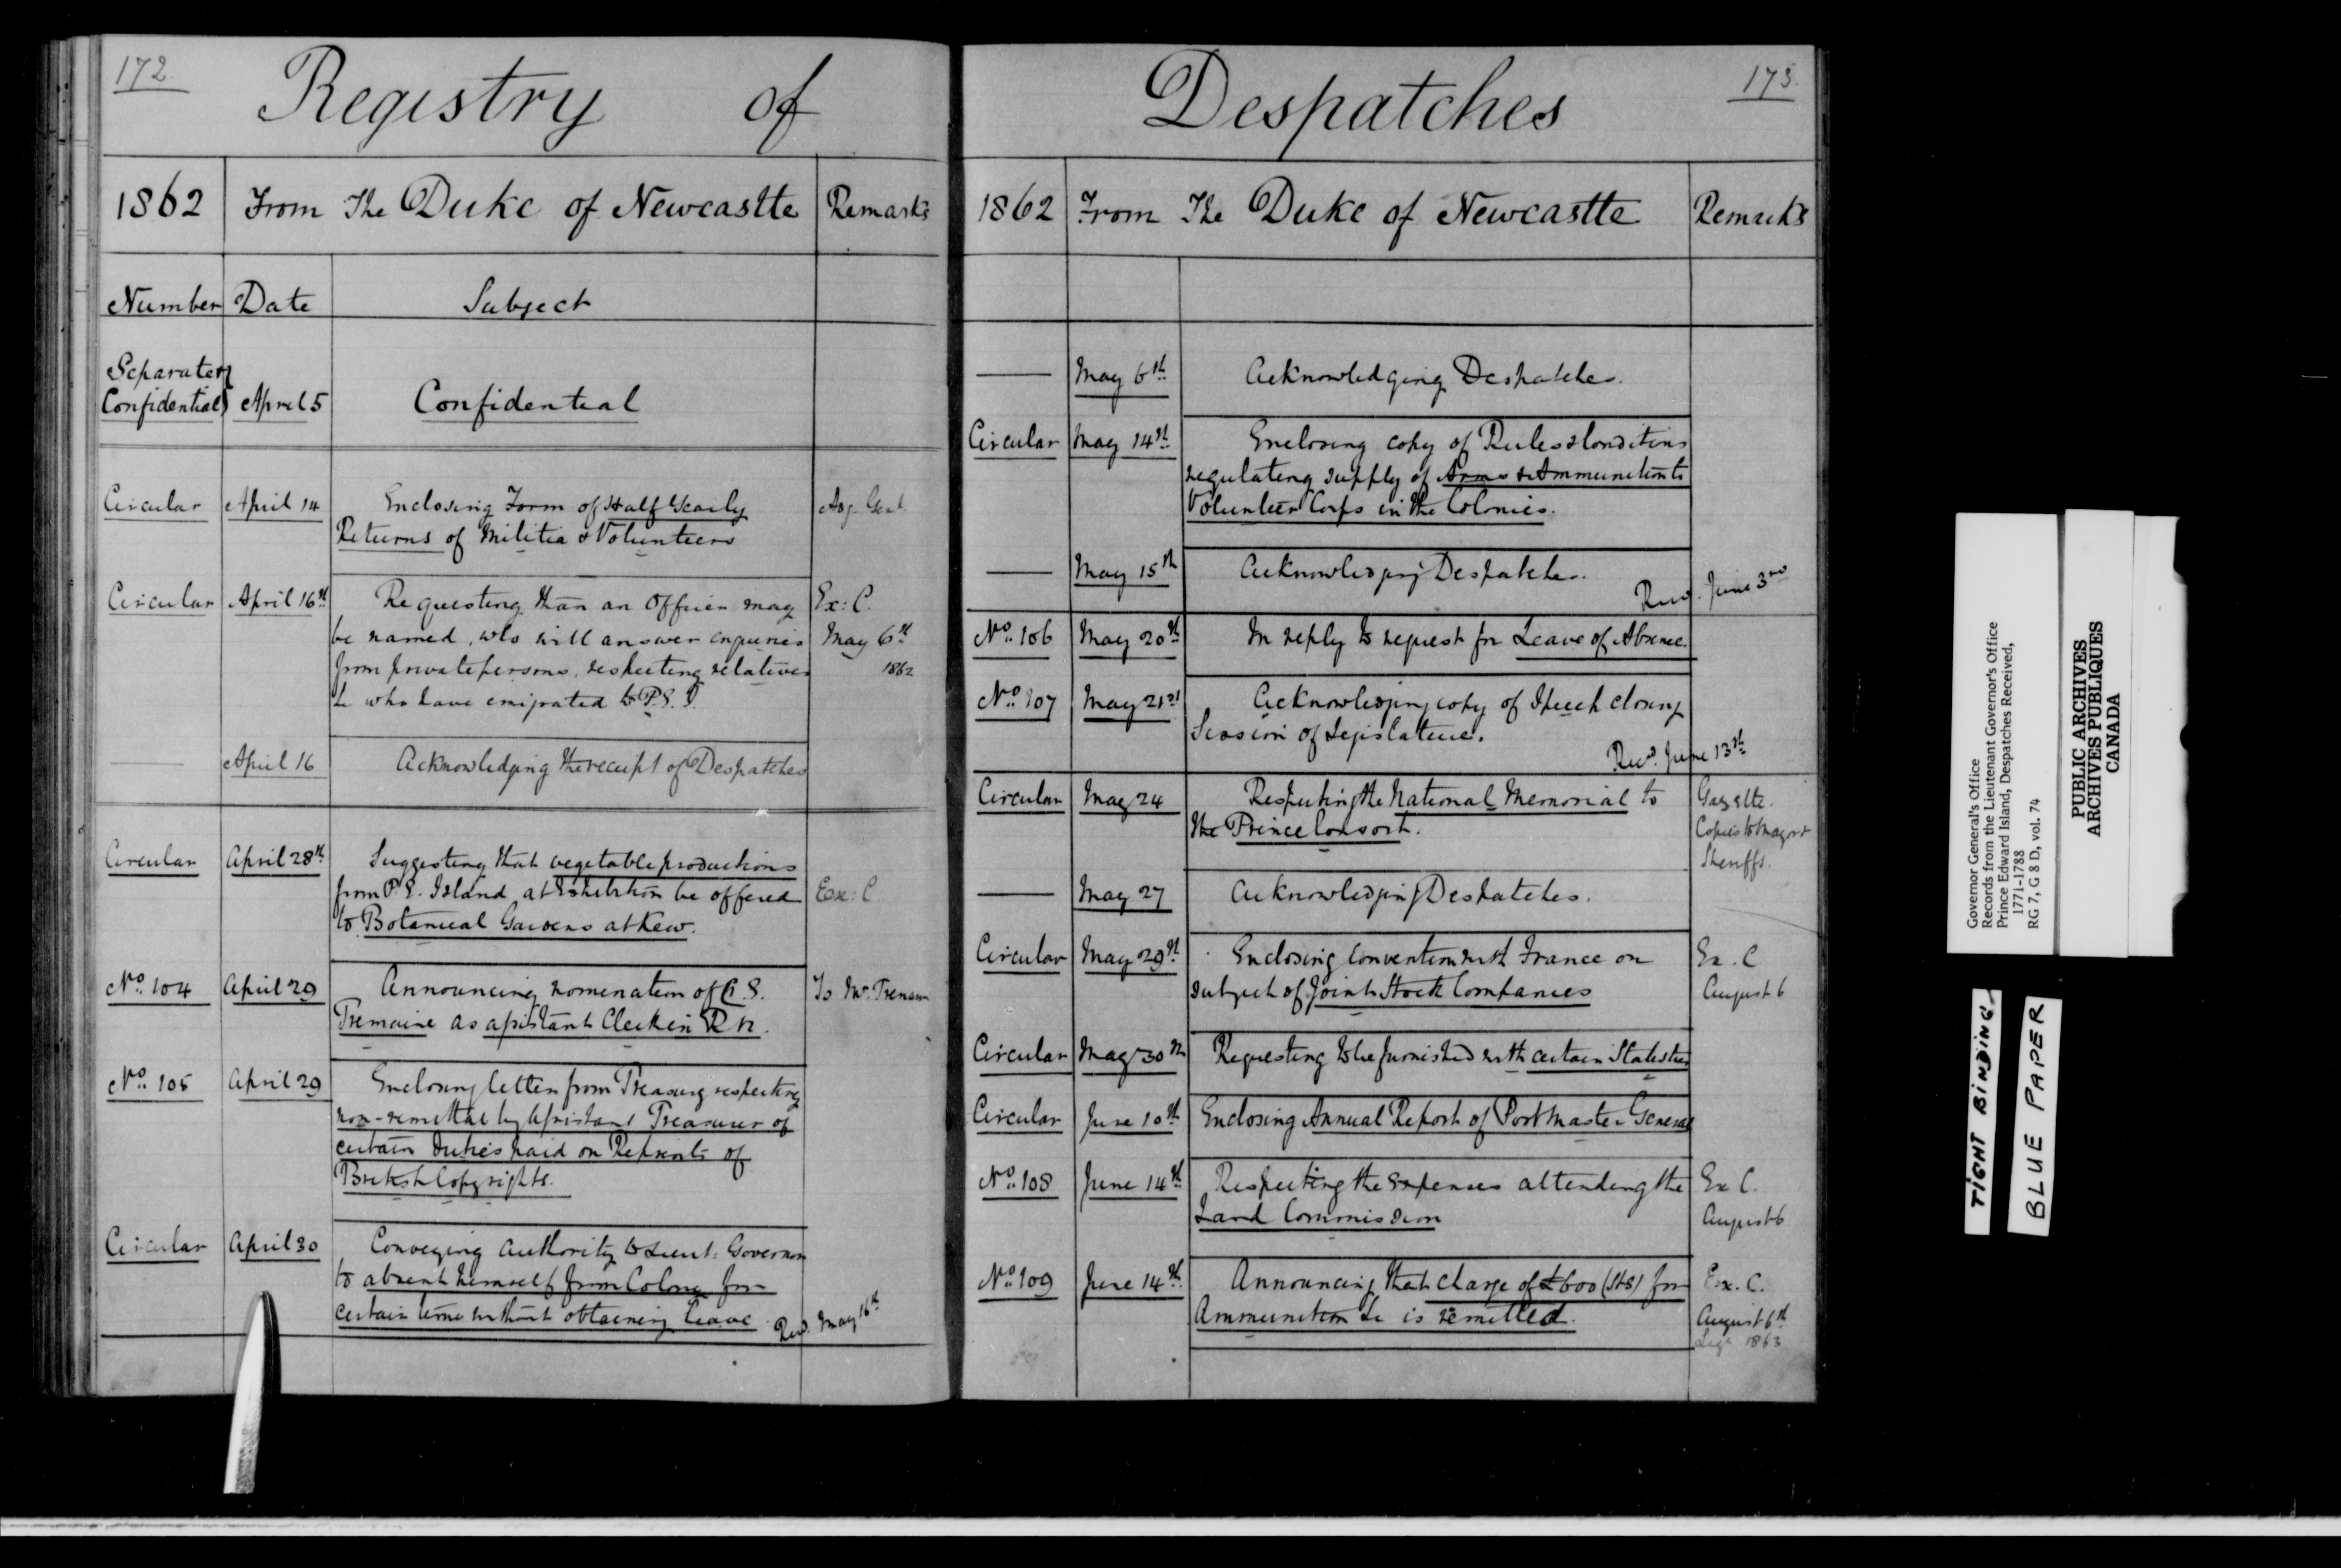 172.
Registry of
1862 From The Duke of Newcastle Remarks
Number Date Subject
Separate &
Confidential April 5 Confidential
Circular April 14 Enclosing Form of Half Yearly Adj. Genl.
Returns of Militia & Volunteers
Circular April 16th Requesting than an Officer may Ex: C.
be named, who will answer enquiries May 6th
from private persons, respecting relatives 1862
&c who have emigrated to P.E.I.
April 16 Acknowledging the receipt of Despatches
Circular April 28th Suggesting that vegetable productions
from P.E. Island, at Exhibition be offered Ex: C
to Botanical Gardens at Kew.
No. 104 April 29 Announcing nomenation of
Tremaine as assistant Clerk in To Mr. Tremain
No. 105 April 29 Enclosing letter from Treasury respecting
non-remittal by Assistant Treasurer of
certain Duties paid on Reprints of
British Copyrights.
Circular April 30 Conveying authority to Lieut: Governor
to absent himself from Colony for
certain time without obtaining leave
Recd. May 16th
173.
Despatches
1862 From The Duke of Newcastle Remarks
May 6th Acknowledging Despatches.
Circular May 14th Enclosing copy of Rules & Conditions
regulating supply of Arms & Ammunition to
Volunteer Corps in the Colonies.
May 15th Acknowledging Despatches.
Recd. June 3rd
No. 106 May 20th In reply to request for Leave of Absence.
No. 107 May 21st Acknowledging copy of Speech closing
Session of Legislature.
Recd. June 13th
Circular May 24 Respecting the National Memorial to Gazette.
the Prince Consort. Copies to Mayor &
Sheriffs.
May 27 Acknowledging Despatches.
Circular May 29th Enclosing Convention with France on Ex. C
subject of Joint Stock Companies August 6
Circular May 30th Requesting to be furnished with certain Statistics
Circular June 10th Enclosing Annual Report of Post Master General
No. 108 June 14th Respecting the expenses attending the Ex C.
Land Commission August 6
No. 109 June 14th Announcing that charge of £600 (Stg) for Ex. C.
Ammunition &c is remitted. August 6th
1863
Governor General's Office
Records from the Lieutenant Governor's Office
Prince Edward Island, Despatches Received,
1771-1788
RG 7, G 8 D, vol. 74
PUBLIC ARCHIVES
ARCHIVES PUBLIQUES
CANADA
TIGHT BINDING
BLUE PAPER